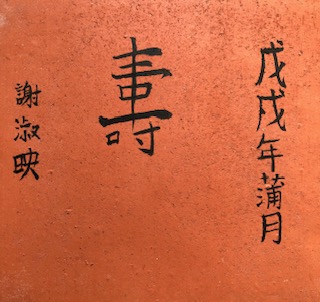 戊戌年蒲月
壽
謝淑映